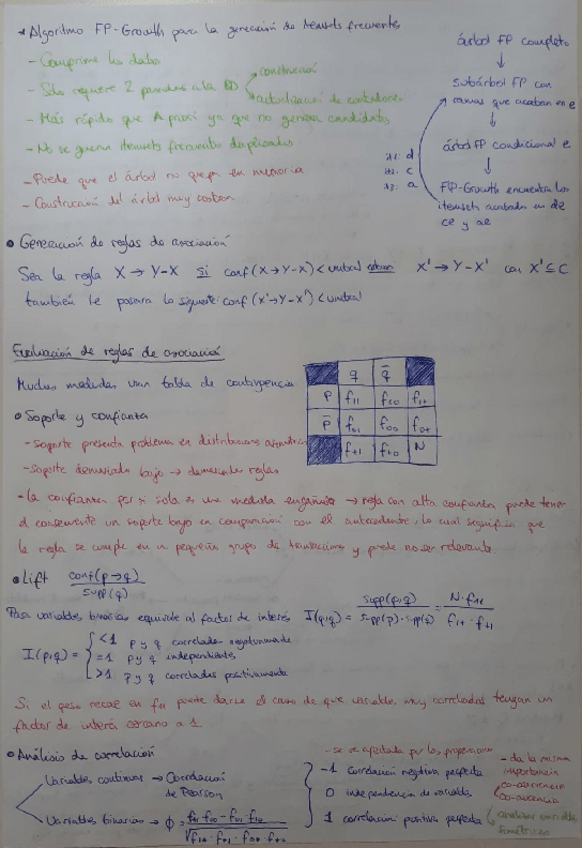 * Algoritmo FP-Growth para la generación de itemsets frecuentes
- Comprime los datos
- Solo requiere 2 pasadas a la BD
construcción
actualización de contadores
- Más rápido que Apriori ya que no genera candidatos
- No se generan itemsets frecuentes duplicados
- Puede que el árbol no quepa en memoria
- Construcción del árbol muy costosa
árbol FP completo
subárbol FP con
ramas que acaban en e
árbol FP condicional e
FP-Growth encuentra los
itemsets acabados en de
ce y ae
it1: d
it2: c
it3: a
● Generación de reglas de asociación
Sea la regla X → Y-X si conf(X→Y-X) < umbral X' → Y-X' con X' ⊆ C
también le pasara lo siguiente: conf(X'→Y-X') < umbral
Evaluación de reglas de asociación
Muchas medidas usan tabla de contingencia
q q̄
p f11 f10 f1+
p̄ f01 f00 f0+
f+1 f+0 N
● Soporte y confianza
- soporte presenta problema en distribuciones
- soporte demasiado bajo → demasiadas reglas
- la confianza por si sola es una medida engañosa → regla con alta confianza puede tener
el consecuente un soporte bajo en comparación con el antecedente, lo cual significa que
la regla se cumple en un pequeño grupo de transacciones y puede no ser relevante.
● Lift conf(p→q) / supp(q)
Para variables binarias equivale al factor de interés I(p,q) = supp(p,q) / supp(p)·supp(q) = N·f11 / f1+·f+1
I(p,q) = { <1 p y q correladas negativamente
=1 p y q independientes
>1 p y q correladas positivamente
Si el peso recae en f11 puede darse el caso de que variables muy correladas tengan un
factor de interés cercano a 1
● Análisis de correlación
Variables continuas → Correlación
de Pearson
Variables binarias → ϕ = f11 f00 - f01 f10 / √f1+ · f+1 · f0+ · f+0
- se ve afectada por las proporciones
-1 correlación negativa perfecta
0 independencia de variables
1 correlación positiva perfecta
- da la misma
importancia
co-ocurrencia
co-ausencia
analizar variables
simétricas